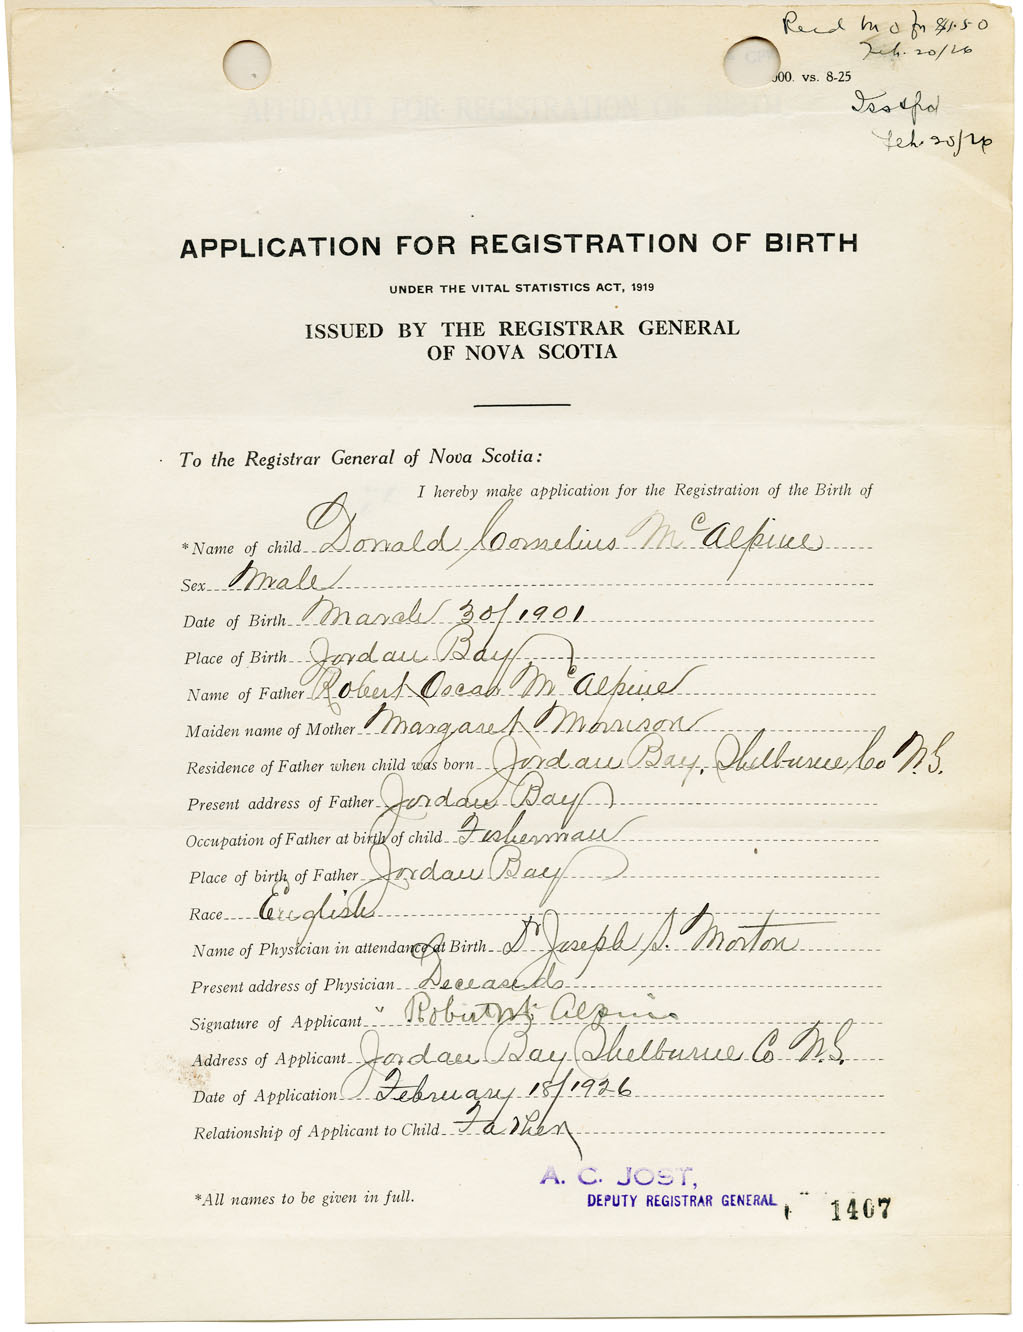 Recd M O for $1.50
Feb. 20/26
000. vs. 8-25
Feb. 20/26
AFFIDAVIT FOR REGISTRATION OF BIRTH
APPLICATION FOR REGISTRATION OF BIRTH
UNDER THE VITAL STATISTICS ACT, 1919
ISSUED BY THE REGISTRAR GENERAL
OF NOVA SCOTIA
To the Registrar General of Nova Scotia:
I hereby make application for the Registration of the Birth of
*Name of child Donald Cornelius McAlpine
Sex Male
Date of Birth March 30/1901
Place of Birth Jordan Bay
Name of Father Robert Oscar McAlpine
Maiden name of Mother Margaret Morrison
Residence of Father when child was born Jordan Bay, Shelburne Co N.S.
Present address of Father Jordan Bay
Occupation of Father at birth of child Fisherman
Place of birth of Father Jordan Bay
Race English
Name of Physician in attendance at Birth Dr Joseph S. Morton
Present address of Physician Deceased
Signature of Applicant " Robert Mc Alpine
Address of Applicant Jordan Bay Shelburne Co N.S.
Date of Application February 18/1926
Relationship of Applicant to Child Father
*All names to be given in full.
A. C. JOST,
DEPUTY REGISTRAR GENERAL
1407